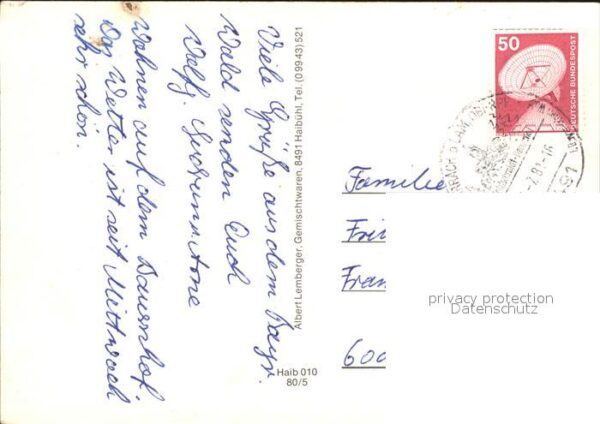 Viele Grüße aus dem Bayr.
Wald senden Euch
Wolfg.
Wohnen auf dem Bauernhof.
Das Wetter ist seit Mittwoch
sehr schön.
Albert Lemberger, Gemischtwaren, 8491 Haibühl, Tel. (09943) 521
Haib 010
80/5
50
DEUTSCHE BUNDESPOST
Familie
Fri
Fran
600
privacy protection
Datenschutz